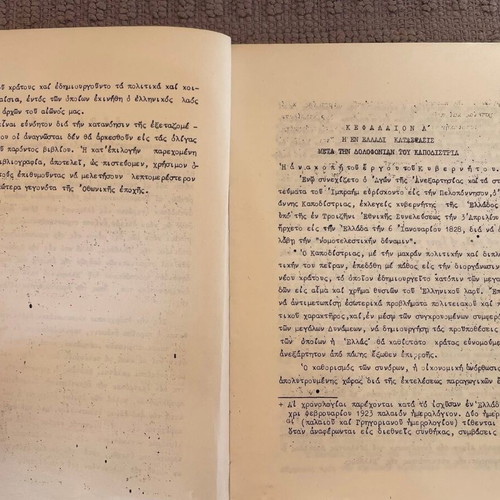 οῦ κράτους καί ἐδημιουργοῦντο τά πολιτικά καί κοι-
αίσια, ἐντός τῶν ὁποίων ἐκινήθη ὁ ἑλληνικός λαός
ἀρχῶν τοῦ αἰῶνός μας.
εἶναι εὐνόητον διά τήν κατανόησιν τῆς ἐξεταζομέ-
ου οἱ ἀναγνῶσται δέν θά ἀρκεσθοῦν εἰς τάς ὀλίγας
παρόντος βιβλίου. Ἡ κατ'ἐπιλογήν παρεχομένη
ιβλιογραφία, ἀποτελεῖ, ὡς πιστεύομεν, χρήσιμον ὁ-
ούς ἐπιθυμοῦντας νά μελετήσουν λεπτομερέστερον
ώτερα γεγονότα τῆς Ὀθωνικῆς ἐποχῆς.
ΚΕΦΑΛΑΙΟΝ Α'
Η ΕΝ ΕΛΛΑΔΙ ΚΑΤΑΣΤΑΣΙΣ
ΜΕΤΑ ΤΗΝ ΔΟΛΟΦΟΝΙΑΝ ΤΟΥ ΚΑΠΟΔΙΣΤΡΙΑ
Ἡ ἀνακοπή τοῦ ἔργου τοῦ Κυβερνήτου.
Ἐνῶ συνεχίζετο ὁ Ἀγών τῆς Ἀνεξαρτησίας καί τά στ
τεύματα τοῦ Ἰμπραήμ εὑρίσκοντο εἰς τήν Πελοπόννησον,ὁ
άννης Καποδίστριας, ἐκλεγείς κυβερνήτης τῆς Ἑλλάδος
ὑπό τῆς ἐν Τροιζῆνι Ἐθνικῆς Συνελεύσεως τήν 3'Ἀπριλίου
ἤρχετο εἰς τήν Ἑλλάδα τήν 6 Ἰανουαρίου 1828, διά νά
λάβῃ τήν "Νομοτελεστικήν δύναμιν".
Ὁ Καποδίστριας, μέ τήν μακράν πολιτικήν καί διπλω
τικήν του πεῖραν, ἐπεδόθη μέ πάθος εἰς τήν διοργάνωσιν
νέου κράτους, τό ὁποῖον ἐδημιουργεῖτο κατόπιν τῶν μεγα
δῶν εἰς αἷμα καί χρῆμα θυσιῶν τοῦ Ἑλληνικοῦ λαοῦ.
νά ἀντιμετωπίσῃ ἐσωτερικά προβλήματα πολιτειακοῦ καί
τικοῦ χαρακτῆρος,καί,ἐν μέσῳ τῶν συγκρουομένων συμφερό
τῶν μεγάλων Δυνάμεων, νά δημιουργήσῃ τάς προϋποθέσεις
τῶν ὁποίων ἡ Ἑλλάς' θά καθίστατο κράτος εὐνομούμε
ἀνεξάρτητον ἀπό πάσης ἔξωθεν ἐπιρροῆς.
Ὁ καθορισμός τῶν συνόρων, ἡ οἰκονομική ἀνόρθωσις
ἀπολυτρουμένης χώρας διά τῆς ἐκτελέσεως παραγωγικῶν
+ Αἱ χρονολογίαι παρέχονται κατά τό ἰσχῦσαν ἐν'Ἑλλάδ
χρι Φεβρουαρίου 1923 παλαιόν ἡμερολόγιον. Δύο ἡμερ
αἱ (παλαιοῦ καί Γρηγοριανοῦ ἡμερολογίου) τίθενται
ὅταν ἀναφέρωνται εἰς διεθνεῖς συνθήκας, συμβάσεις